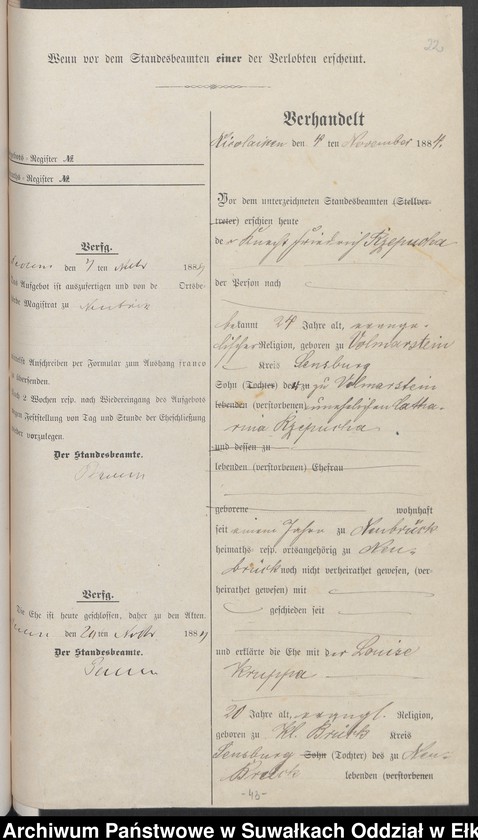 22
Wenn vor dem Standesbeamten einer der Verlobten erscheint.
Verhandelt
Nicolaiken den 4 ten November 1884.
Register №
Register №
Vor dem unterzeichneten Standesbeamten (Stellver-
treter) erschien heute
der Knecht Friedrich Rzepucha
der Person nach
bekannt 24 Jahre alt, evange-
lischer Religion, geboren zu Volmarstein
Kreis Sensburg
Sohn (Tochter) der zu Volmarstein
lebenden (verstorbenen) unehelichen Catha-
rina Rzepucha
und dessen zu
lebenden (verstorbenen) Ehefrau
geborene wohnhaft
seit einem Jahre zu Neubrück
heimaths- resp. ortsangehörig zu Neu-
brück noch nicht verheirathet gewesen, (ver-
heirathet gewesen) mit
geschieden seit
und erklärte die Ehe mit der Louise
Kruppa
20 Jahr alt, evangl. Religion,
geboren zu Kl. Brück Kreis
Sensburg Sohn (Tochter) des zu Neu-
Brück lebenden (verstorbenen
-43-
Verfg.
den 7 ten 1884
Das Aufgebot ist auszufertigen und von de Ortsbe-
Magistrat zu Neubrück
Anschreiben per Formular zum Aushang franco
übersenden.
Nach 2 Wochen resp. nach Wiedereingang des Aufgebots
wegen Feststellung von Tag und Stunde der Eheschließung
vorzulegen.
Der Standesbeamte.
Verfg.
Die Ehe ist heute geschlossen, daher zu den Akten.
den 20 ten 1884
Der Standesbeamte.
Archiwum Państwowe w Suwałkach Oddział w Ełk